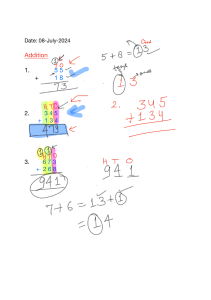 Date: 08-July-2024
Addition
1.
5 5
+ 1 8
7 3
5 + 8 = 1 3
1 3
2.
H T O
3 4 5
+ 1 3 4
4 7 9
2. 3 4 5
+ 1 3 4
3.
6 7 3
+ 2 6 8
9 4 1
H T O
9 4 1
7 + 6 = 13 + 1
= 1 4